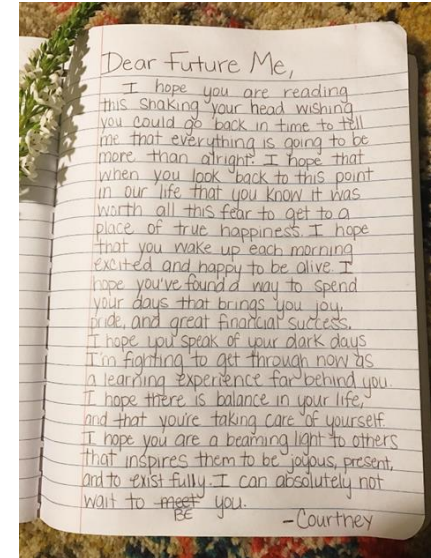 Dear Future Me,
I hope you are reading
this shaking your head wishing
you could go back in time to tell
me that everything is going to be
more than alright. I hope that
when you look back to this point
in our life that you know it was
worth all this fear to get to a
place of true happiness. I hope
that you wake up each morning
excited and happy to be alive. I
hope you've found a way to spend
your days that brings you joy,
pride, and great financial success.
I hope you speak of your dark days
I'm fighting to get through now as
a learning experience far behind you.
I hope there is balance in your life,
and that you're taking care of yourself.
I hope you are a beaming light to others
that inspires them to be joyous, present,
and to exist fully. I can absolutely not
wait to meet you.
BE
-Courtney